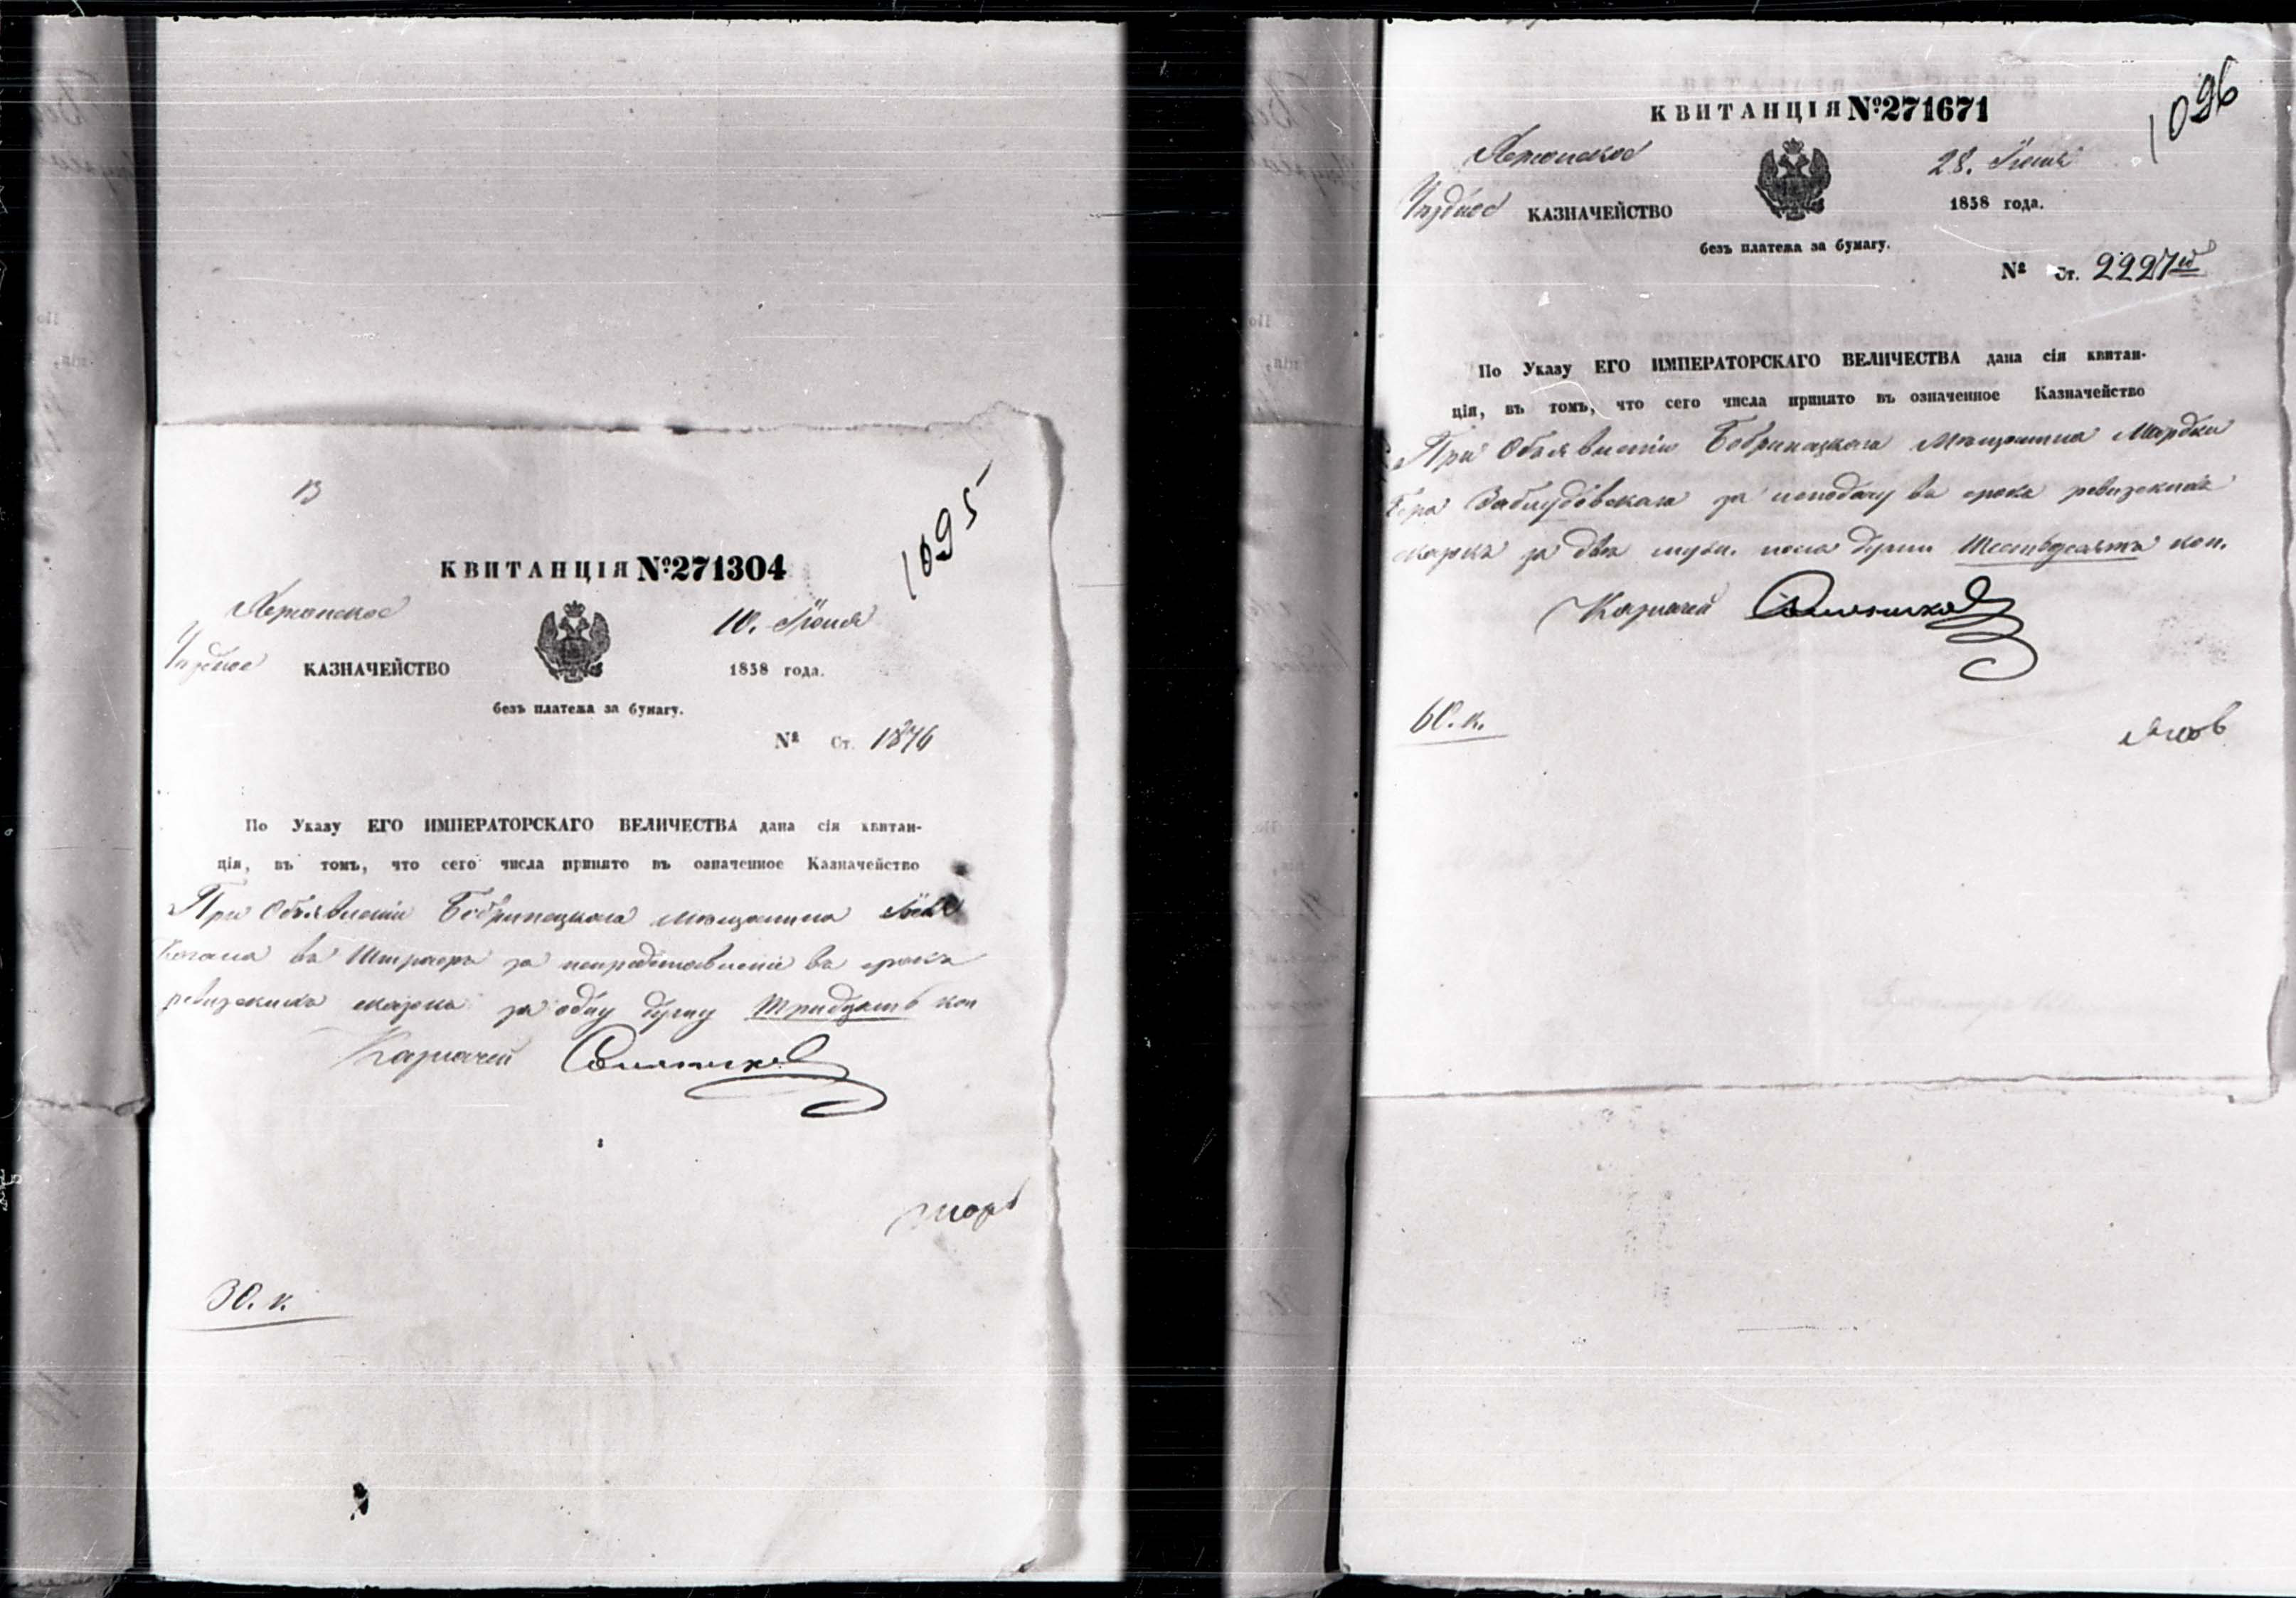 1095
КВИТАНЦІЯ № 271304
Херсонское 10. Іюня
Уѣздное КАЗНАЧЕЙСТВО 1858 года.
безъ платежа за бумагу.
№ Ст. 1876
По Указу ЕГО ИМПЕРАТОРСКАГО ВЕЛИЧЕСТВА дана сія квитан-
ція, въ томъ, что сего числа принято въ означенное Казначейство
При Объявленіи Бобринецкаго мѣщанина
Когана въ Штрафъ за непредставленіе въ срокъ
ревизскихъ сказокъ за одну душу тридцать коп
Казначей
30. к.
1096
КВИТАНЦІЯ № 271671
Херсонское 28. Іюня
Уѣздное КАЗНАЧЕЙСТВО 1858 года.
безъ платежа за бумагу.
№ Ст. 2227
По Указу ЕГО ИМПЕРАТОРСКАГО ВЕЛИЧЕСТВА дана сія квитан-
ція, въ томъ, что сего числа принято въ означенное Казначейство
При Объявленіи Бобринецкаго Мѣщанина Мордки
Бера Заблудовскаго за неподачу въ срокъ ревизскихъ
сказокъ за двѣ муж. пола души Шестьдесятъ коп.
Казначей
60. к.